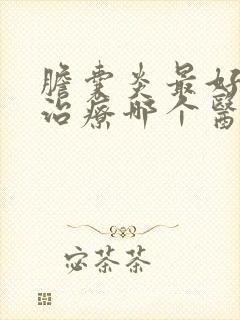 膽囊炎最好
治療哪个醫
宓茶茶